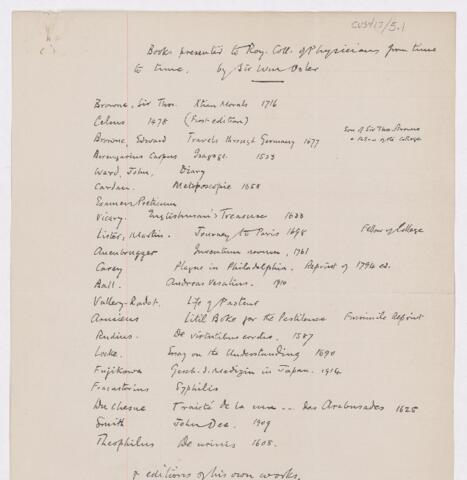 CUST17/5.1
Books presented to Roy. Coll. of Physicians from time
to time, by Sir Wm Osler
Browne, Sir Thos. Xtian Morals 1716
Celsus 1478 (First edition)
Browne, Edward Travels through Germany 1677 Son of Sir Thos. Browne
& Fellow of the College
Berengarius Carpus Isagoge. 1523
Ward, John, Diary
Cardan. Metoposcopie 1658
Vicary. Englishman's Treasure 1633
Lister, Martin. Journey to Paris 1698 Fellow of College
Auenbrugger Inventum novum, 1761
Carey Plague in Philadelphia. Reprint of 1794 ed.
Ball. Andreas Vesalius. 1910
Vallery-Radot. Life of Pasteur
Litil Boke for the Pestilence Facsimile Reprint
Rudius. De virtutibus cordis, 1587
Locke. Essay on the Understanding 1690
Fujikawa Gesch. d. Medizin in Japan. 1914
Fracastorius Syphilis
Du Chesne Traicté de la cure -- des Arcbusades 1625
Smith John Dee. 1909
Theophilus De urinis 1608.
& editions of his own works.